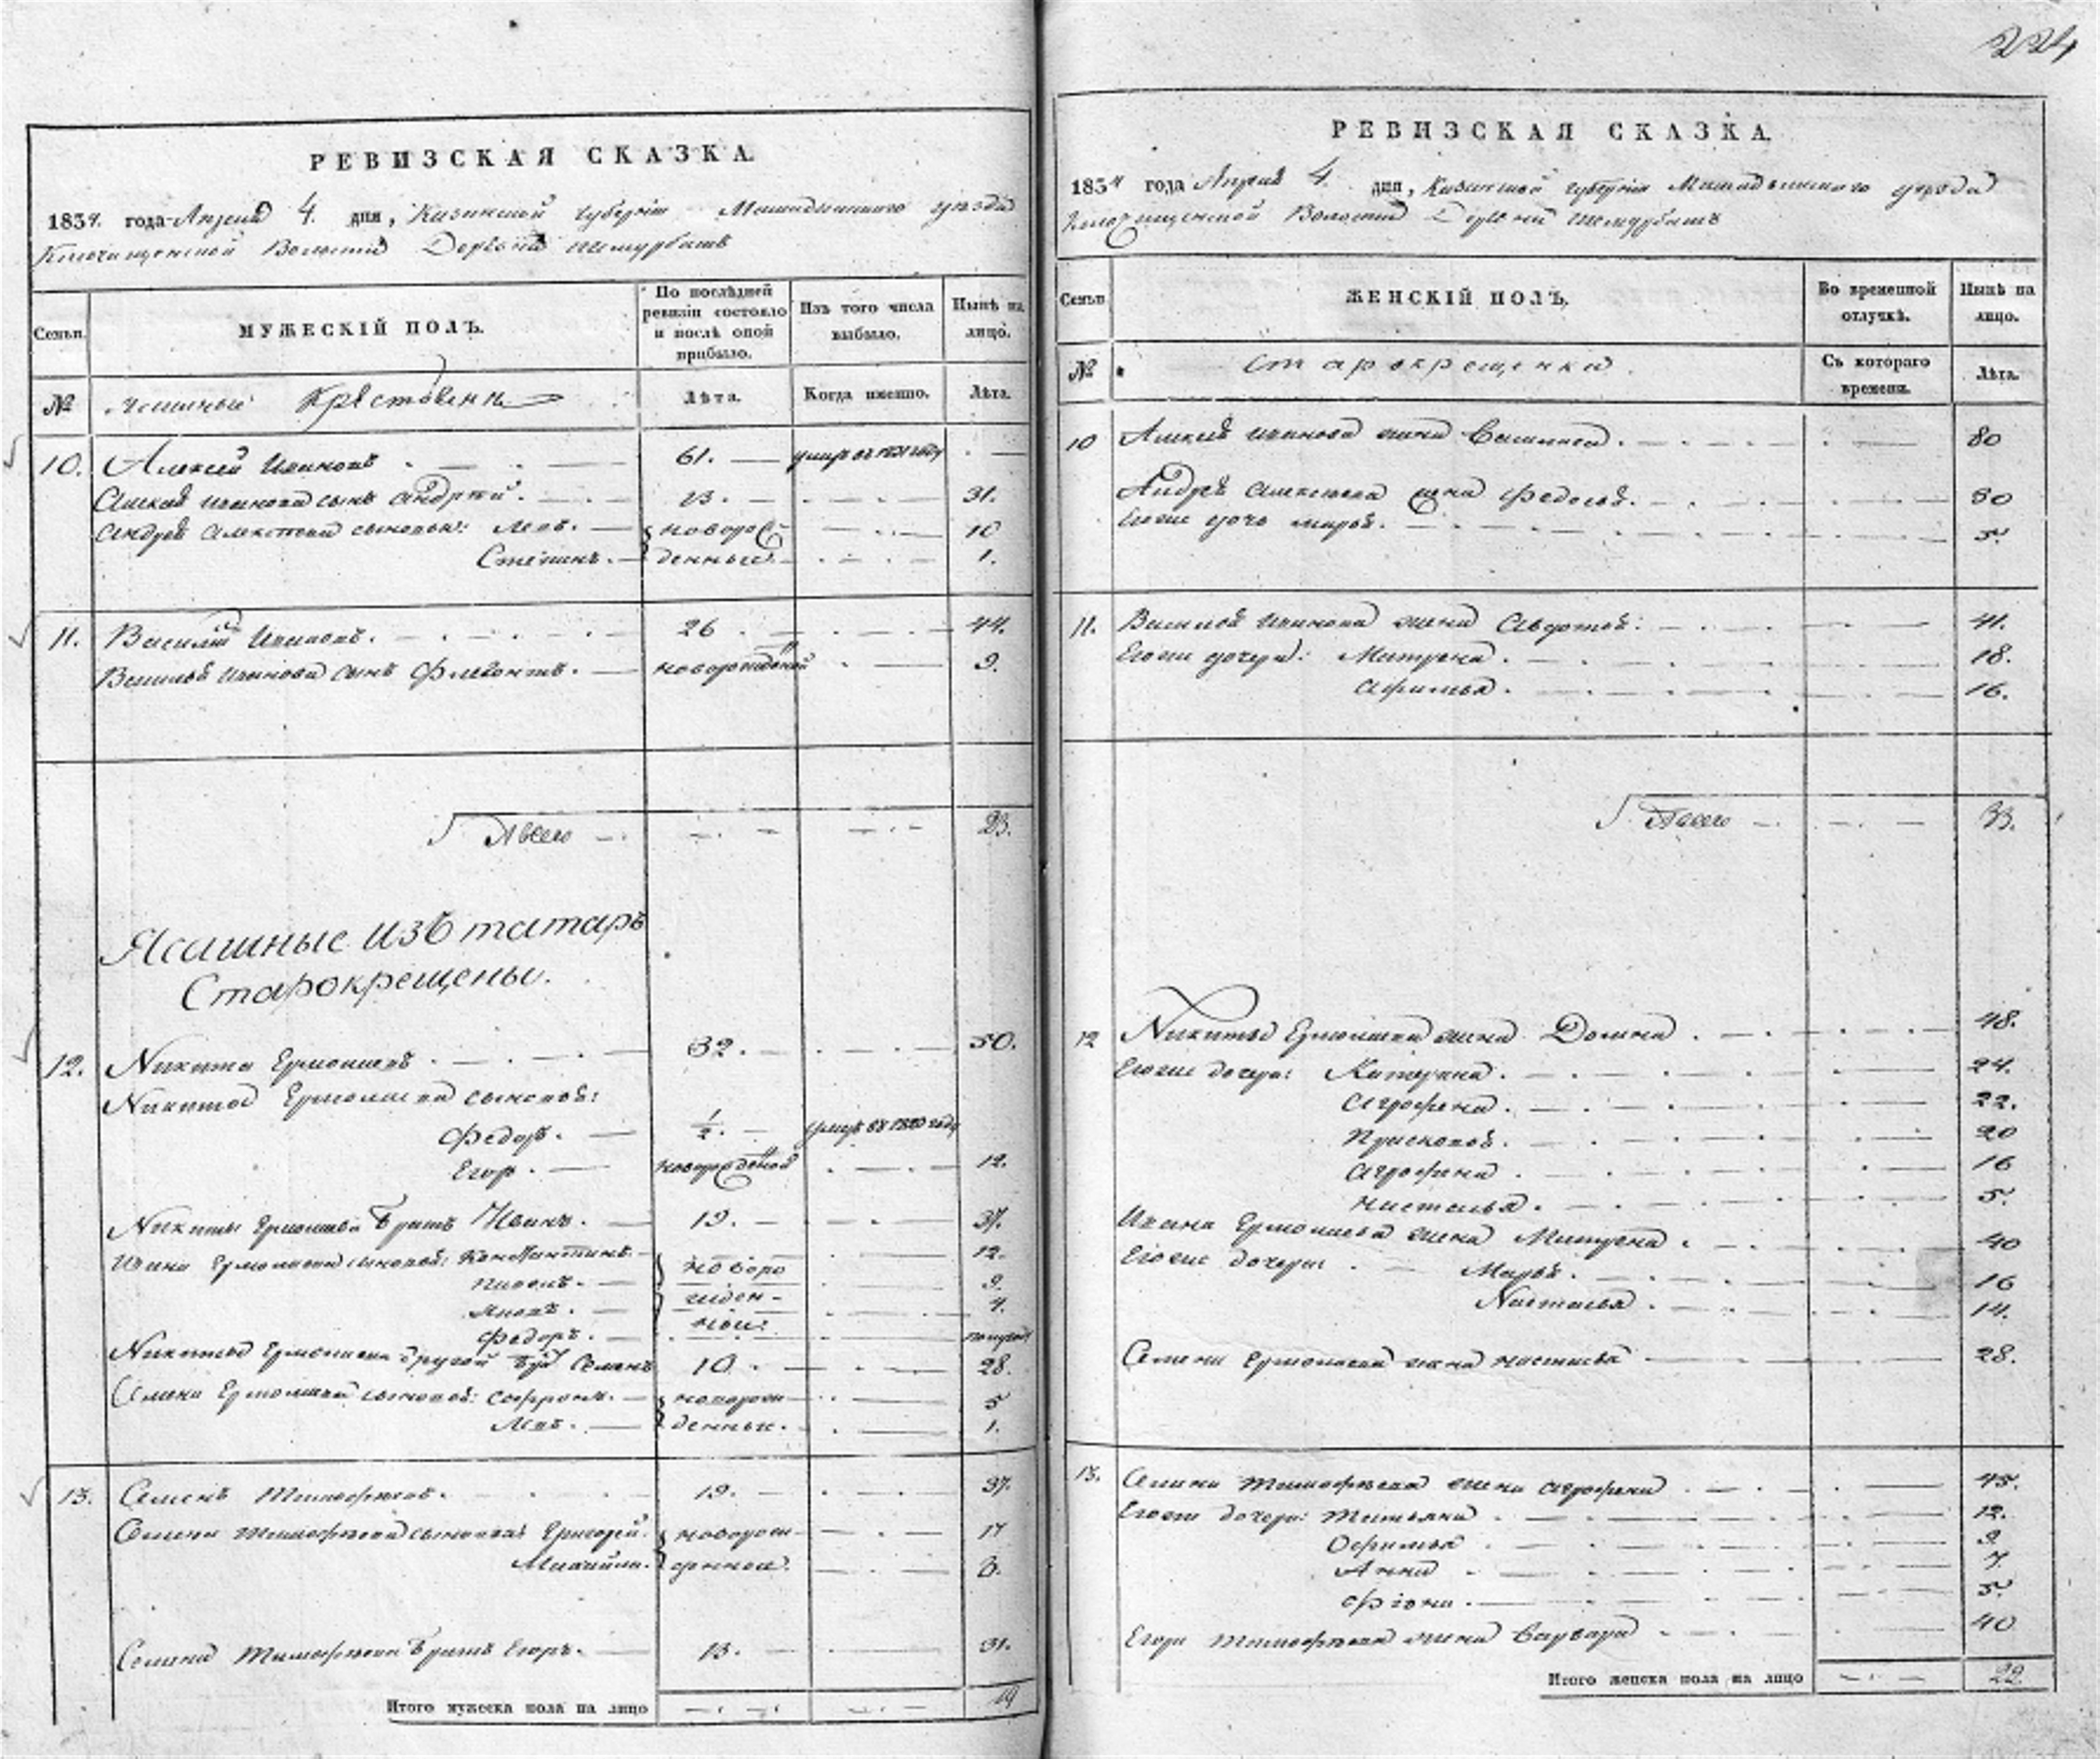 224
РЕВИЗСКАЯ СКАЗКА.
1834 года Апреля 4. дня, Казанской губернiи Мамадышскаго уезда
Ключищенской Волости Деревни Шемурбашъ
Семьи.
МУЖЕСКІЙ ПОЛЪ.
По послѣдней ревизіи состояло и послѣ оной прибыло.
Изъ того числа выбыло.
Нынѣ на лицо.
№
Крестьяне
Лѣта.
Когда именно.
Лѣта.
10. Алексей Ивановъ 61. умеръ въ году
Алексея Иванова сынъ Андрей. 13. 31.
Андрея Алексеева сыновья: Левъ. новорож- 10
Степанъ. денные 1.
11. Василій Ивановъ. 26 44.
Василья Иванова сынъ Флегонтъ. новорожденной 9.
Всего 23.
Ясашные изъ татаръ
Старокрещены.
12. Никита Ермолаевъ 32. 50.
Никиты Ермолаева сыновья:
Федоръ. 1/2. умеръ въ 1820 году
Егор. новорожденной 12.
Никиты Ермолаева братъ Иванъ. 19. 37.
Ивана Ермолаева сыновья: Константинъ. новоро 12.
Павелъ. жден- 9.
Яковъ. ные: 4.
Федоръ.
Никиты Ермолаева другой братъ Семенъ 10. 28.
Семена Ермолаева сыновья: Софронъ. новорож 5
Левъ. денные. 1.
13. Семенъ Тимофеевъ. 19. 37.
Семена Тимофеева сыновья: Григорей. новорож- 17
Михайло. денные. 3.
Семена Тимофеева братъ Егоръ. 13. 31.
Итого мужеска пола на лицо 19
РЕВИЗСКАЯ СКАЗКА.
1834 года Апреля 4. дня, Казанской губернiи Мамадышскаго уезда
Ключищенской Волости Деревни Шемурбашъ
Семьи.
ЖЕНСКІЙ ПОЛЪ.
Во временной отлучкѣ.
Нынѣ на лицо.
№
Старокрещенки.
Съ котораго времени.
Лѣта.
10 Алексея Иванова жена Василиса. 80
Андрея Алексеева жена Федосья. 30
Егоже дочь Марья. 5.
11. Василья Иванова жена Авдотья: 41.
Егоже дочери: Матрена. 18.
Афимья. 16.
Всего 33.
12 Никиты Ермолаева жена Домна. 48.
Егоже дочери: Катерина. 24.
Агрофена. 22.
Прасковья. 20
Агрофина 16
Настасья. 5.
Ивана Ермолаева жена Матрена. 40
Егоже дочери: Марья. 16
Настасья. 14.
Семена Ермолаева жена Настасья 28.
13. Семена Тимофеева жена Агрофена 45.
Егоже дочери: Татьяна 12.
Офимья 9
Анна 7.
5.
Егора Тимофеева жена Варвара 40
Итого женска пола на лицо 22.